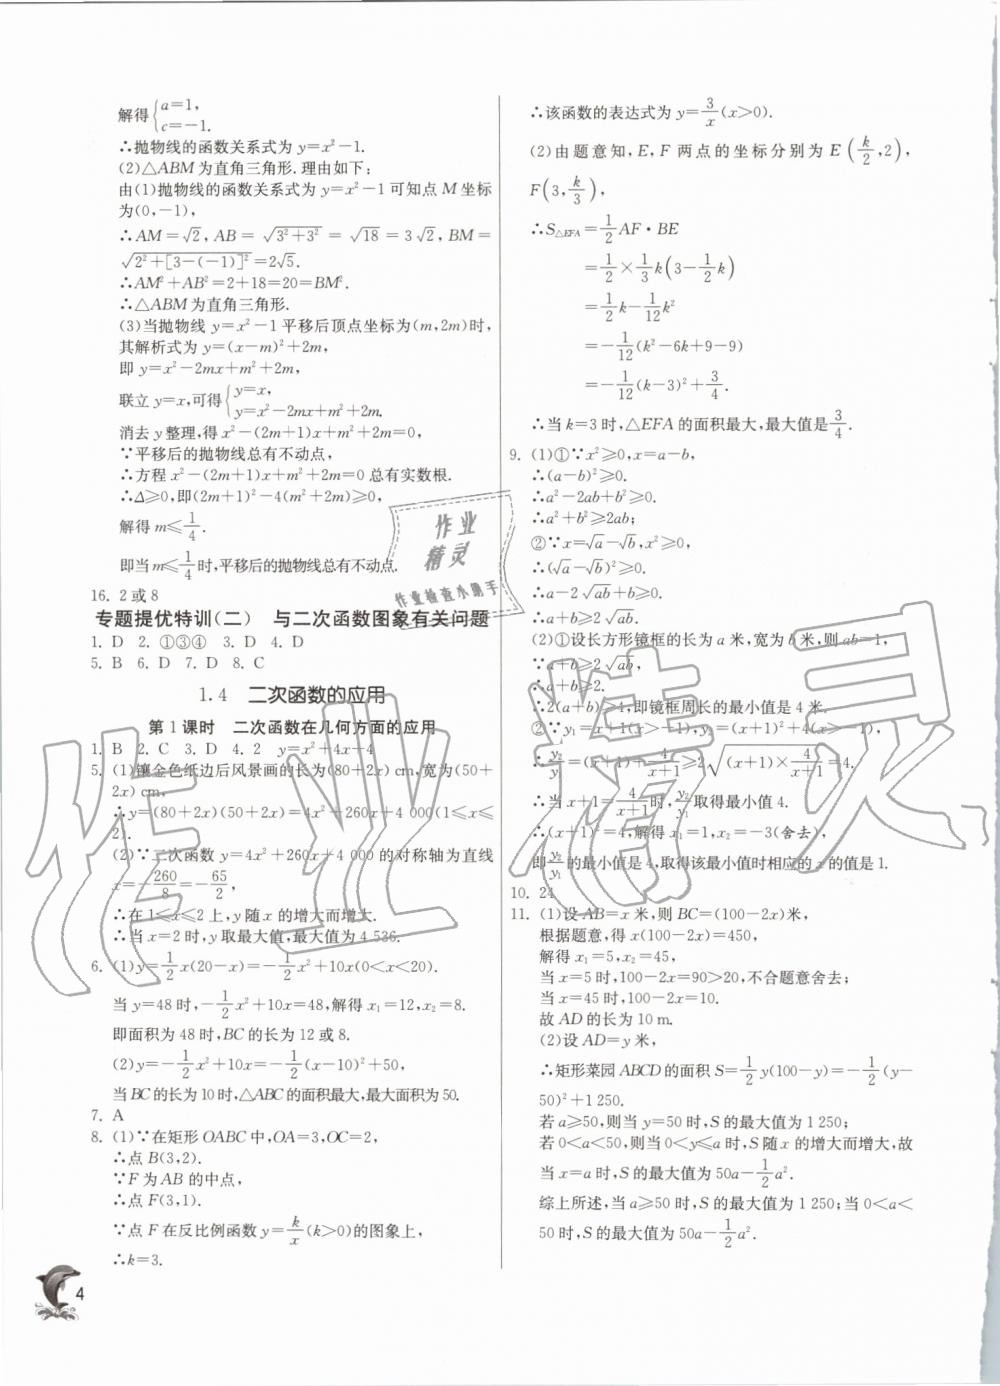 解得{a=1,
c=-1.
∴抛物线的函数关系式为 y=x²-1.
(2)△ABM为直角三角形.理由如下:
由(1)抛物线的函数关系式为 y=x²-1 可知点 M 坐标
为(0,-1),
∴AM=√2, AB= √(3²+3²) = √18 = 3√2, BM=
√(2²+[3-(-1)]²)=2√5.
∴AM²+AB²=2+18=20=BM².
∴△ABM为直角三角形.
(3)当抛物线 y=x²-1平移后顶点坐标为(m,2m)时,
其解析式为 y=(x-m)²+2m,
即 y=x²-2mx+m²+2m,
联立 y=x,可得{y=x,
y=x²-2mx+m²+2m.
消去 y 整理,得 x²-(2m+1)x+m²+2m=0,
∵平移后的抛物线总有不动点,
∴方程 x²-(2m+1)x+m²+2m=0 总有实数根.
∴Δ≥0,即(2m+1)²-4(m²+2m)≥0,
解得 m≤1/4.
即当 m≤1/4时,平移后的抛物线总有不动点.
16. 2 或 8
专题提优特训(二) 与二次函数图象有关问题
1. D 2. ①③④ 3. D 4. D
5. B 6. D 7. D 8. C
1.4 二次函数的应用
第1课时 二次函数在几何方面的应用
1. B 2. C 3. D 4. 2 y=x²+4x-4
5. (1)镶金色纸边后风景画的长为(80+2x) cm,宽为(50+
2x) cm,
∴y=(80+2x)(50+2x)=4x²+260x+4 000(1≤x≤
2).
(2)∵二次函数 y=4x²+260x+4 000 的对称轴为直线
x=-260/8=-65/2,
∴在 1≤x≤2 上,y 随 x 的增大而增大.
∴当 x=2时,y 取最大值,最大值为 4 536.
6. (1)y=1/2x(20-x)=-1/2x²+10x(0<x<20).
当 y=48时,-1/2x²+10x=48,解得 x₁=12,x₂=8.
即面积为 48 时,BC 的长为 12 或 8.
(2)y=-1/2x²+10x=-1/2(x-10)²+50,
当 BC的长为 10 时,△ABC 的面积最大,最大面积为 50.
7. A
8. (1)∵在矩形 OABC 中,OA=3,OC=2,
∴点 B(3,2).
∵F 为 AB 的中点,
∴点 F(3,1).
∵点 F 在反比例函数 y=k/x(k>0)的图象上,
∴k=3.
4
∴该函数的表达式为 y=3/x(x>0).
(2)由题意知, E, F 两点的坐标分别为 E(k/2,2),
F(3,k/3),
∴S△EFA=1/2AF·BE
=1/2×1/3k(3-1/2k)
=1/2k-1/12k²
=-1/12(k²-6k+9-9)
=-1/12(k-3)²+3/4.
∴当 k=3 时,△EFA 的面积最大,最大值是3/4.
9. (1)①∵x²≥0,x=a-b,
∴(a-b)²≥0.
∴a²-2ab+b²≥0.
∴a²+b²≥2ab;
②∵x=√a-√b,x²≥0,
∴(√a-√b)²≥0.
∴a-2√ab+b≥0.
∴a+b≥2√ab.
(2)①设长方形镜框的长为 a 米,宽为 b 米,则 ab=1,
∵a+b≥2√ab,
∴a+b≥2.
∴2(a+b)≥4,即镜框周长的最小值是 4 米.
②∵y₁=x+1(x>-1),y₂=(x+1)²+4(x>-1),
∴y₂/y₁=(x+1)+4/(x+1)≥2√((x+1)×4/(x+1))=4.
∴当 x+1=4/(x+1)时,y₂/y₁取得最小值 4.
∴(x+1)²=4,解得 x₁=1,x₂=-3(舍去),
即y₂/y₁的最小值是 4,取得该最小值时相应的 x 的值是 1.
10. 24
11. (1)设 AB=x 米,则 BC=(100-2x)米,
根据题意,得 x(100-2x)=450,
解得 x₁=5,x₂=45,
当 x=5时,100-2x=90>20,不合题意舍去;
当 x=45 时,100-2x=10.
故 AD 的长为 10 m.
(2)设 AD=y 米,
∴矩形菜园 ABCD 的面积 S=1/2y(100-y)=-1/2(y-
50)²+1 250.
若 a≥50,则当 y=50 时,S 的最大值为 1 250;
若 0<a<50,则当 0<y≤a 时,S 随 x 的增大而增大,故
当 x=a 时,S 的最大值为 50a-1/2a².
综上所述,当 a≥50时,S 的最大值为 1 250;当 0<a<
50 时,S 的最大值为 50a-1/2a².
作业
精灵
作业检查小助手
作业精灵